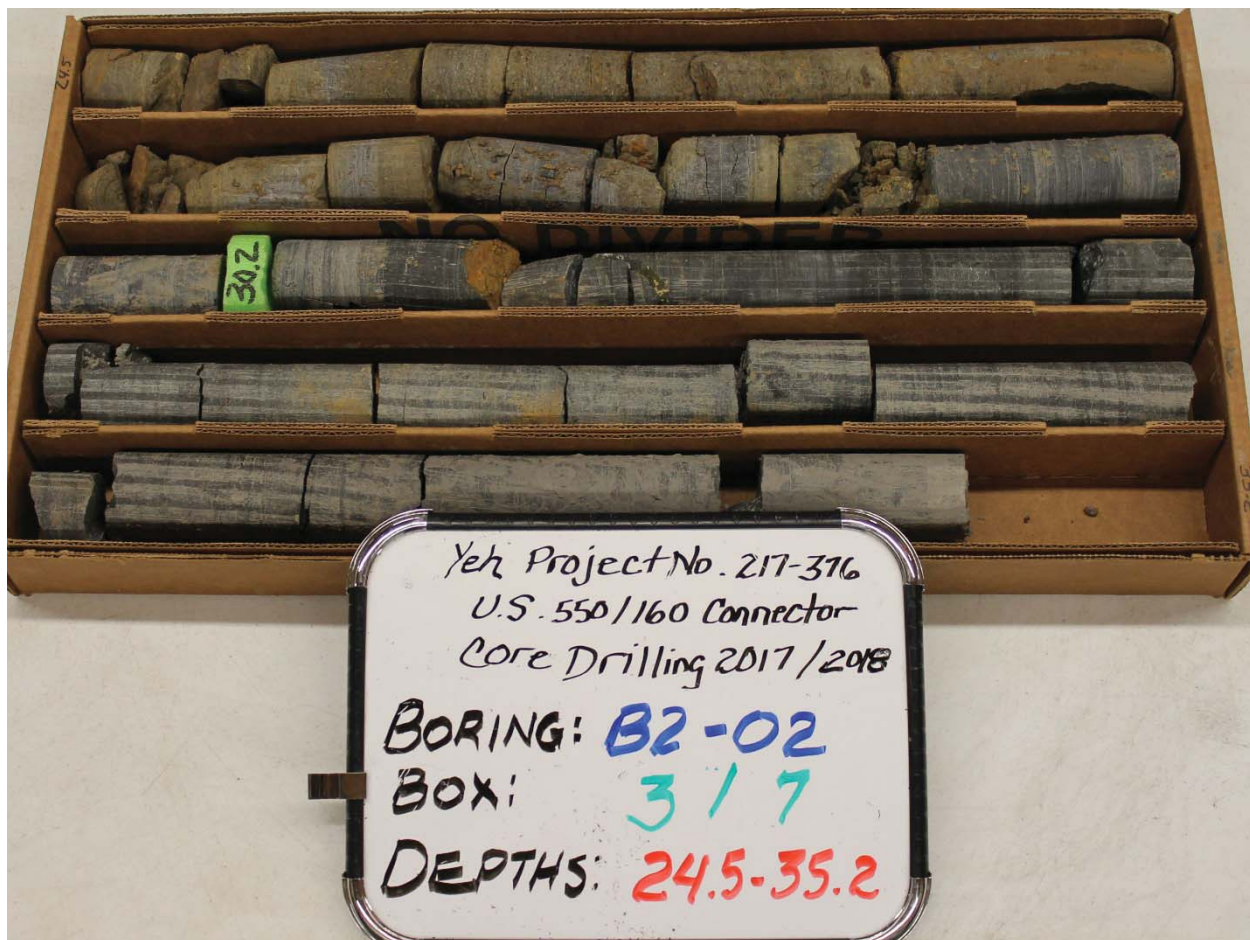 24.5
NO DIVIDER
30.2
Yeh Project No. 217-376
U.S. 550/160 Connector
Core Drilling 2017/2018
BORING: B2-02
BOX: 3/7
DEPTHS: 24.5-35.2